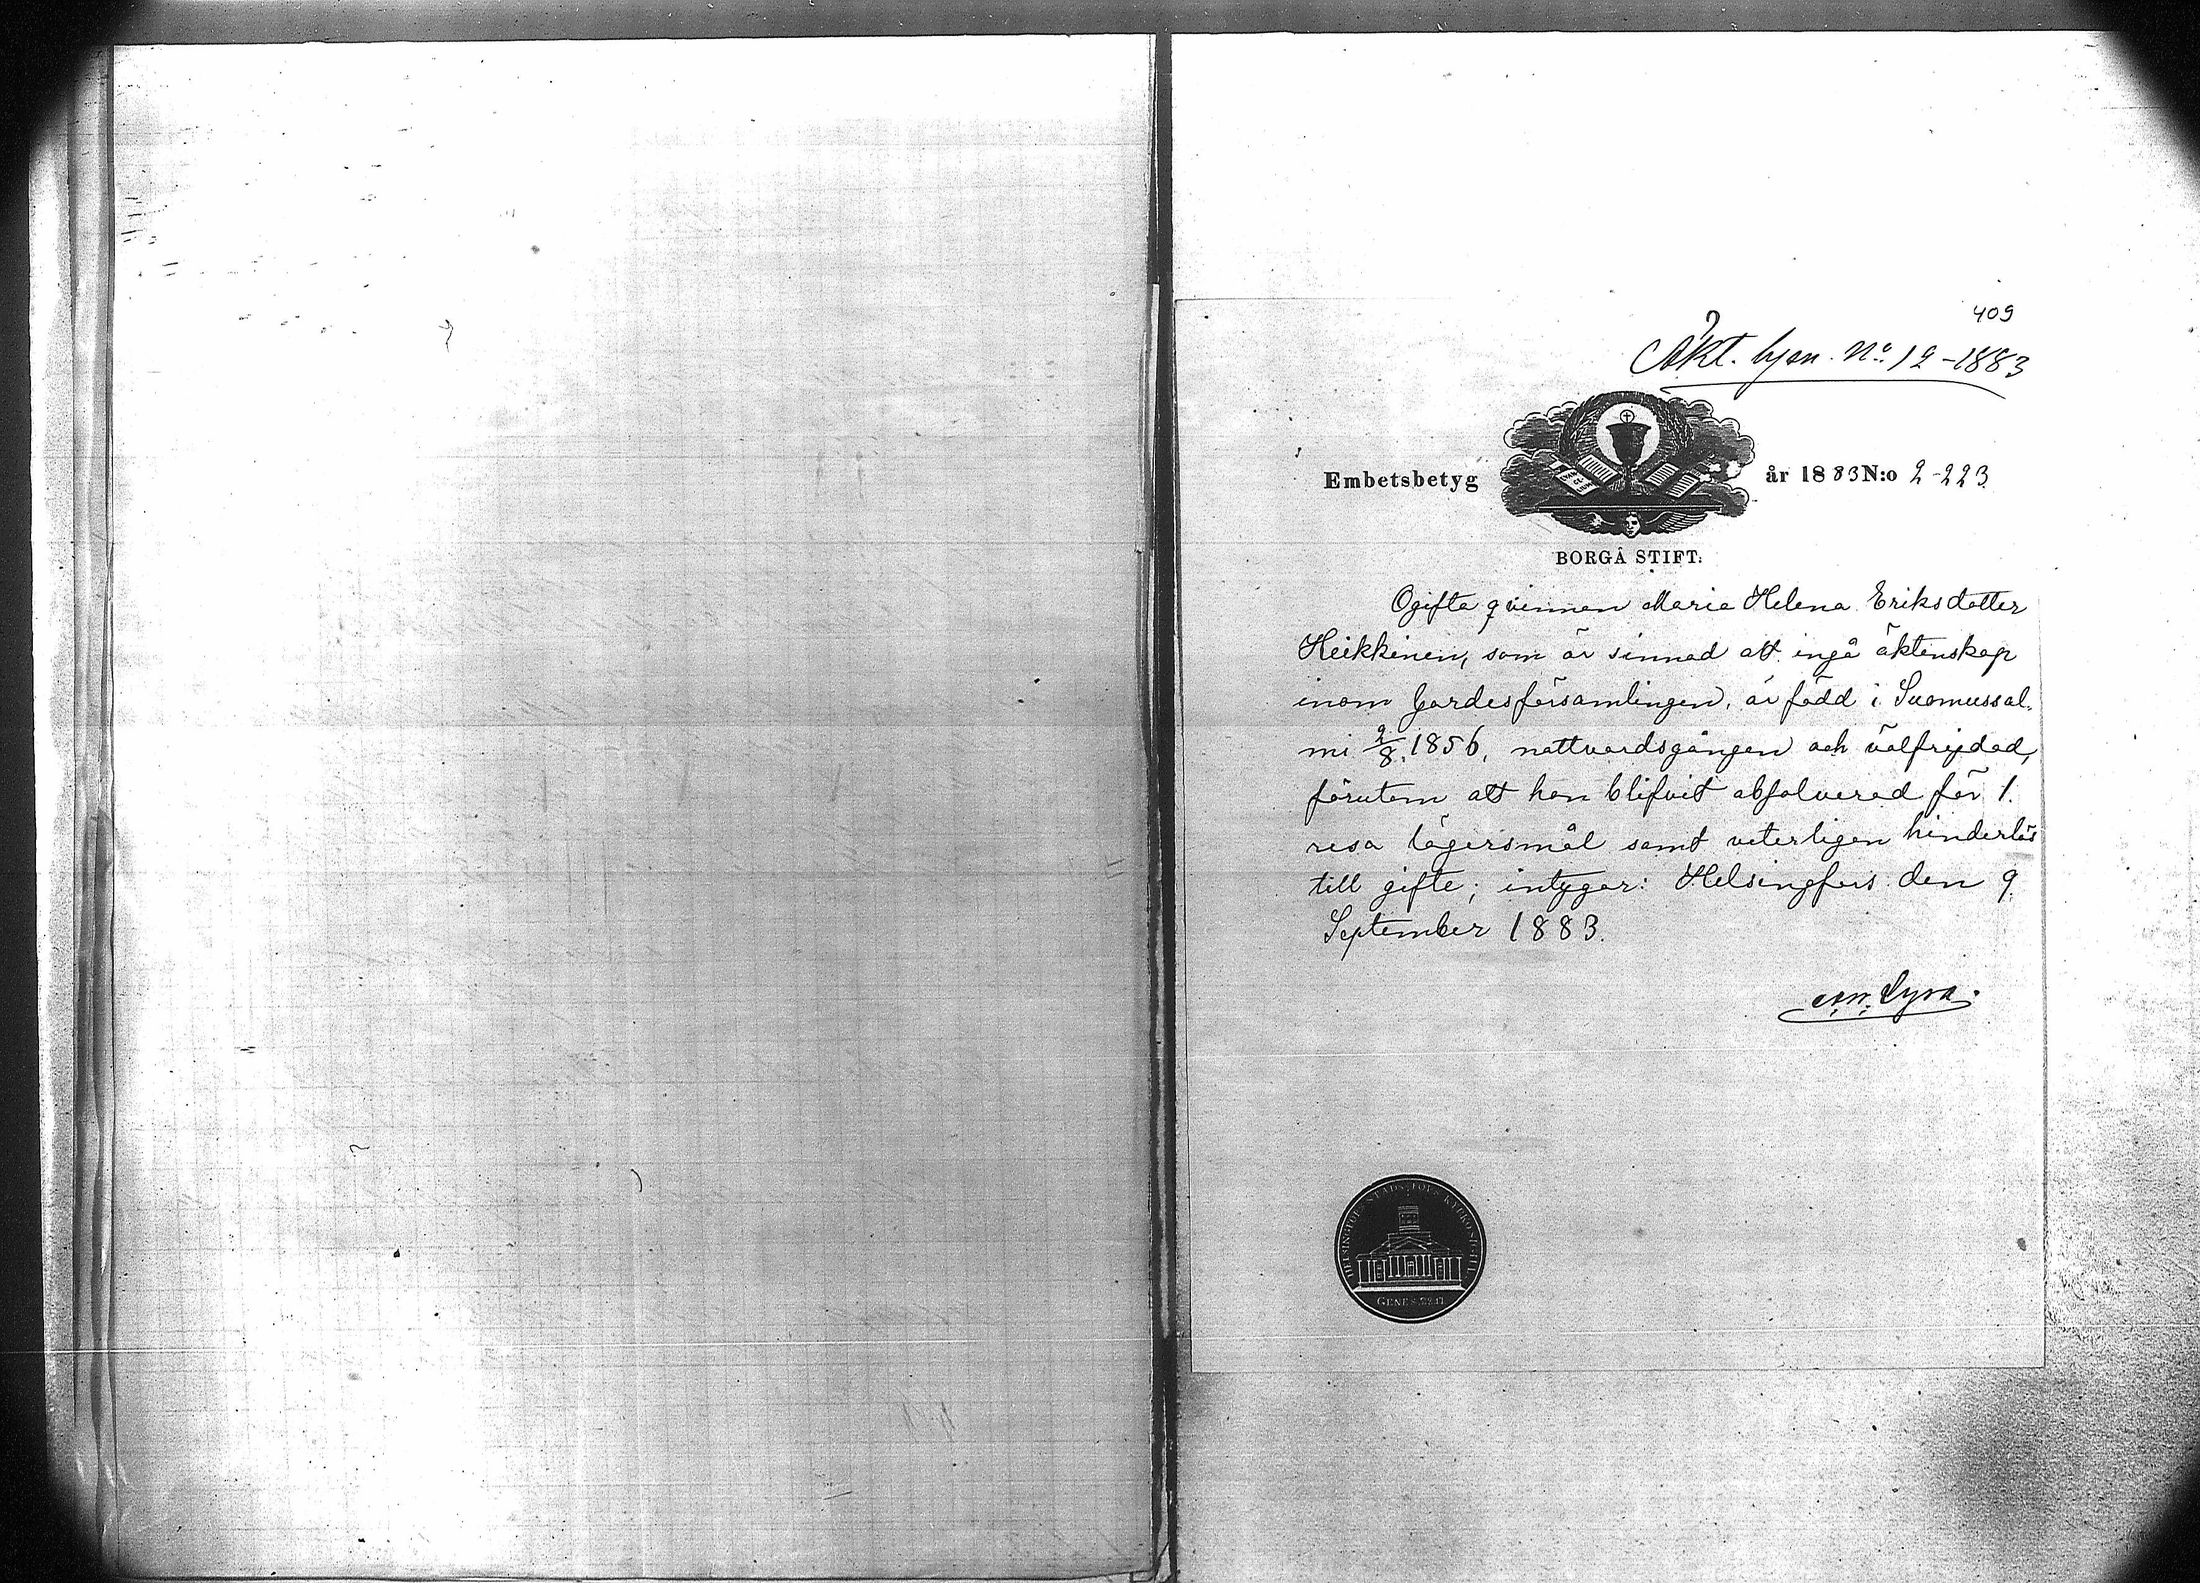 409
Äkt. lysn. No: 12-1883
Embetsbetyg år 1883 N:o 2-223.
BORGÅ STIFT.
Ogifta qvinnan Maria Helena Eriksdotter
Heikkinen, som är sinnad att ingå äktenskap
inom Gardesförsamlingen, är född i Suomussal-
mi 2/8. 1856, nattvardsgången och välfrejdad,
förutom att hon blifvit absolverad för 1.
resa lägersmål samt veterligen hinderlös
till gifte; intygar: Helsingfors den 9.
September 1883.
Lyra.
HELSINGFORS STADS FÖRS. KYRKO SIGILL
GENES. 28.17